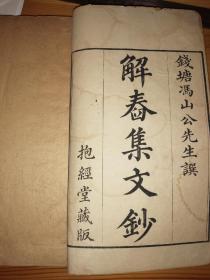 錢塘馮山公先生譔
解舂集文鈔
抱經堂藏版